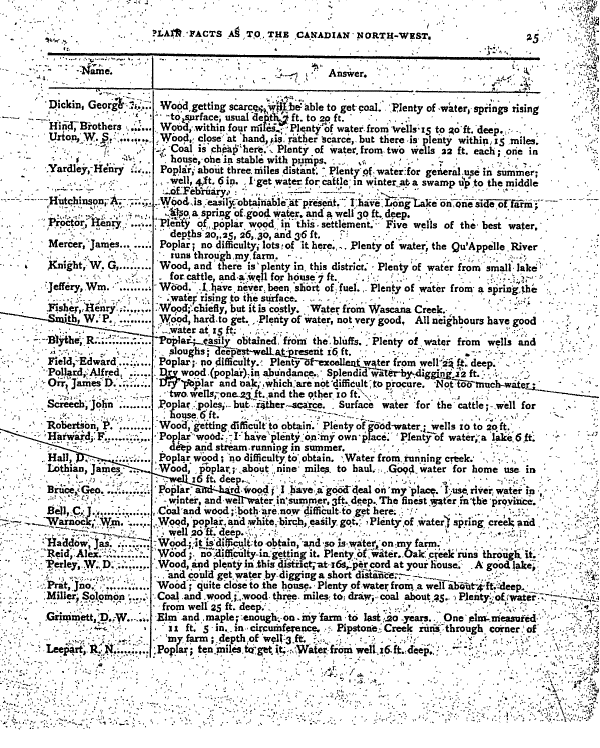 PLAIN FACTS AS TO THE CANADIAN NORTH-WEST. 25
Name. Answer.
Dickin, George ...... Wood getting scarce, will be able to get coal. Plenty of water, springs rising
to surface, usual depth 7 ft. to 20 ft.
Hind, Brothers ...... Wood, within four miles. Plenty of water from wells 15 to 20 ft. deep.
Urton, W. S. ......... Wood, close at hand, is rather scarce, but there is plenty within 15 miles.
Coal is cheap here. Plenty of water from two wells 22 ft. each; one in
house, one in stable with pumps.
Yardley, Henry ...... Poplar, about three miles distant. Plenty of water for general use in summer;
well, 4 ft. 6 in. I get water for cattle in winter at a swamp up to the middle
of February.
Hutchinson, A. ...... Wood is easily obtainable at present. I have Long Lake on one side of farm;
also a spring of good water, and a well 30 ft. deep.
Proctor, Henry ...... Plenty of poplar wood in this settlement. Five wells of the best water,
depths 20, 25, 26, 30, and 36 ft.
Mercer, James...... Poplar; no difficulty, lots of it here. Plenty of water, the Qu'Appelle River
runs through my farm.
Knight, W. G......... Wood, and there is plenty in this district. Plenty of water from small lake
for cattle, and a well for house 7 ft.
Jeffery, Wm. ......... Wood. I have never been short of fuel. Plenty of water from a spring the
water rising to the surface.
Fisher, Henry ......... Wood; chiefly, but it is costly. Water from Wascana Creek.
Smith, W. P. ......... Wood, hard to get. Plenty of water, not very good. All neighbours have good
water at 15 ft.
Blythe, R............... Poplar; easily obtained from the bluffs. Plenty of water from wells and
sloughs; deepest well at present 16 ft.
Field, Edward ......... Poplar; no difficulty. Plenty of excellent water from well 22 ft. deep.
Pollard, Alfred ...... Dry wood (poplar) in abundance. Splendid water by digging 12 ft.
Orr, James D. ......... Dry poplar and oak, which are not difficult to procure. Not too much water;
two wells, one 23 ft. and the other 10 ft.
Screech, John ......... Poplar poles, but rather scarce. Surface water for the cattle; well for
house 6 ft.
Robertson, P. ......... Wood, getting difficult to obtain. Plenty of good water; wells 10 to 20 ft.
Harward, F............. Poplar wood. I have plenty on my own place. Plenty of water, a lake 6 ft.
deep and stream running in summer.
Hall, D. ............... Poplar wood; no difficulty to obtain. Water from running creek.
Lothian, James ...... Wood, poplar; about nine miles to haul. Good water for home use in
well 16 ft. deep.
Bruce, Geo. ............ Poplar and hard wood; I have a good deal on my place. I use river water in
winter, and well water in summer, 3ft. deep. The finest water in the province.
Bell, C. J. ............ Coal and wood; both are now difficult to get here.
Warnock, Wm. ...... Wood, poplar and white birch, easily got. Plenty of water; spring creek and
well 20 ft. deep.
Haddow, Jas. ......... Wood; it is difficult to obtain, and so is water, on my farm.
Reid, Alex. ............ Wood; no difficulty in getting it. Plenty of water. Oak creek runs through it.
Perley, W. D. ......... Wood, and plenty in this district, at 16s. per cord at your house. A good lake,
and could get water by digging a short distance.
Prat, Jno. ............ Wood; quite close to the house. Plenty of water from a well about 4 ft. deep.
Miller, Solomon ...... Coal and wood; wood three miles to draw, coal about 25. Plenty of water
from well 25 ft. deep.
Grimmett, D. W. ... Elm and maple; enough on my farm to last 20 years. One elm measured
11 ft. 5 in. in circumference. Pipstone Creek runs through corner of
my farm; depth of well 3 ft.
Leepart, R. N.......... Poplar; ten miles to get it. Water from well 16 ft. deep.